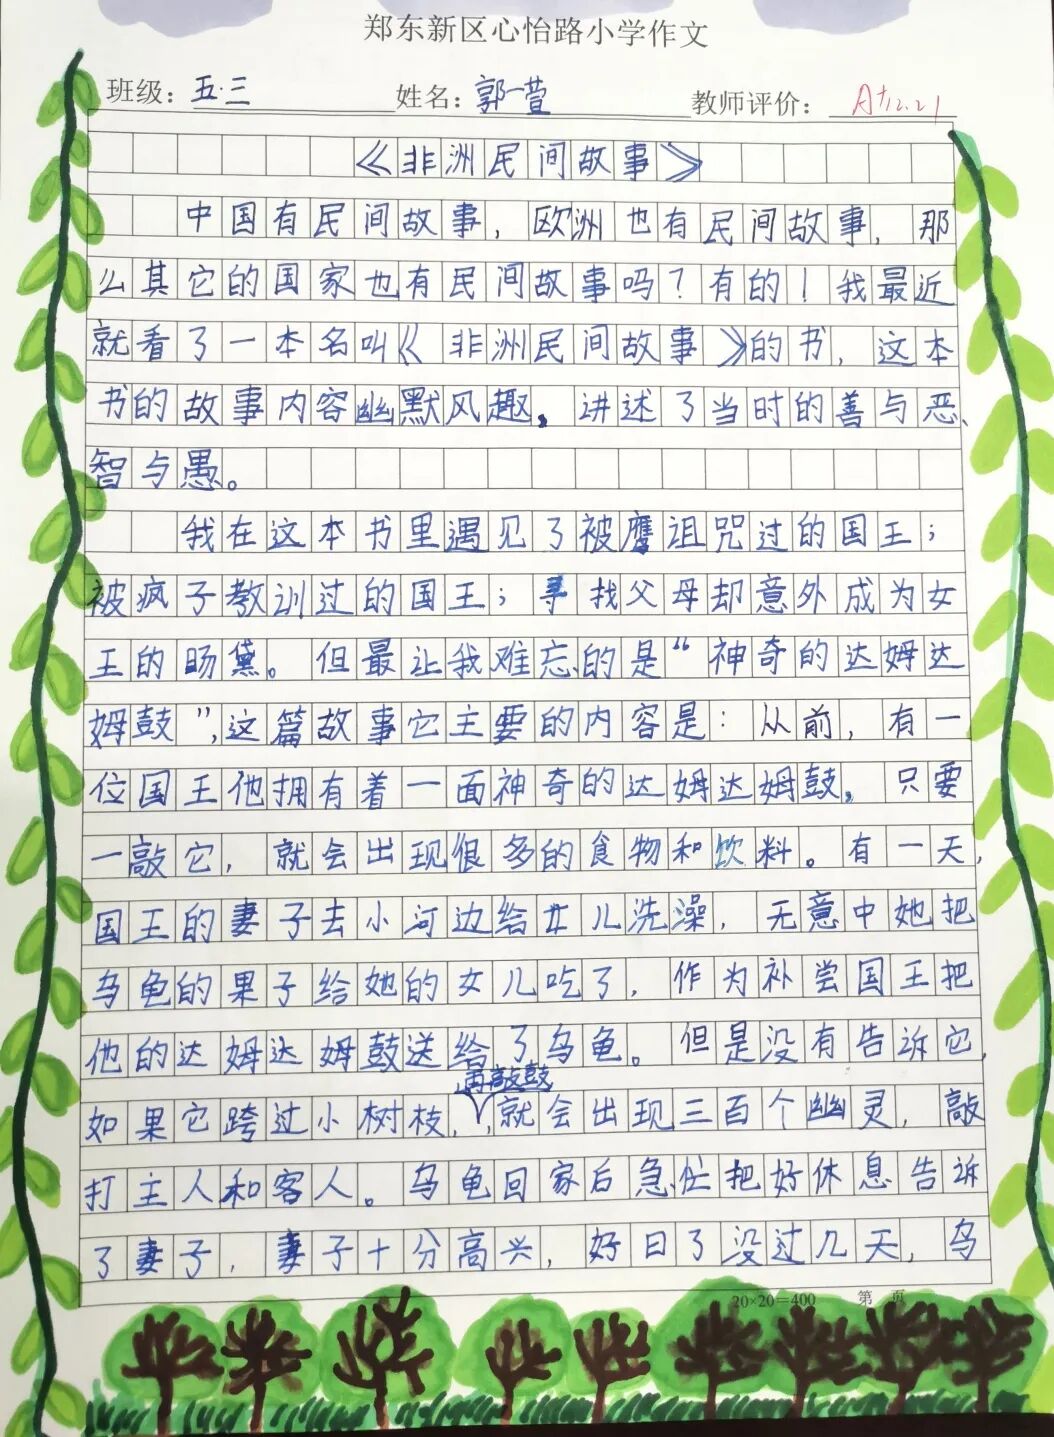 郑东新区心怡路小学作文
班级：五.三 姓名：郭一萱 教师评价：A+12.21
《非洲民间故事》
中国有民间故事，欧洲也有民间故事，那
么其它的国家也有民间故事吗？有的！我最近
就看了一本名叫《非洲民间故事》的书，这本
书的故事内容幽默风趣，讲述了当时的善与恶、
智与愚。
我在这本书里遇见了被鹰诅咒过的国王；
被疯子教训过的国王；寻找父母却意外成为女
王的旸黛。但最让我难忘的是“神奇的达姆达
姆鼓”，这篇故事它主要的内容是：从前，有一
位国王他拥有着一面神奇的达姆达姆鼓。只要
一敲它，就会出现很多的食物和饮料。有一天，
国王的妻子去小河边给女儿洗澡，无意中她把
乌龟的果子给她的女儿吃了，作为补尝国王把
他的达姆达姆鼓送给了乌龟。但是没有告诉它，
再敲鼓
如果它跨过小树枝，，就会出现三百个幽灵，敲
打主人和客人。乌龟回家后急忙把好休息告诉
了妻子，妻子十分高兴，好日了没过几天，乌
20×20=400 第 页